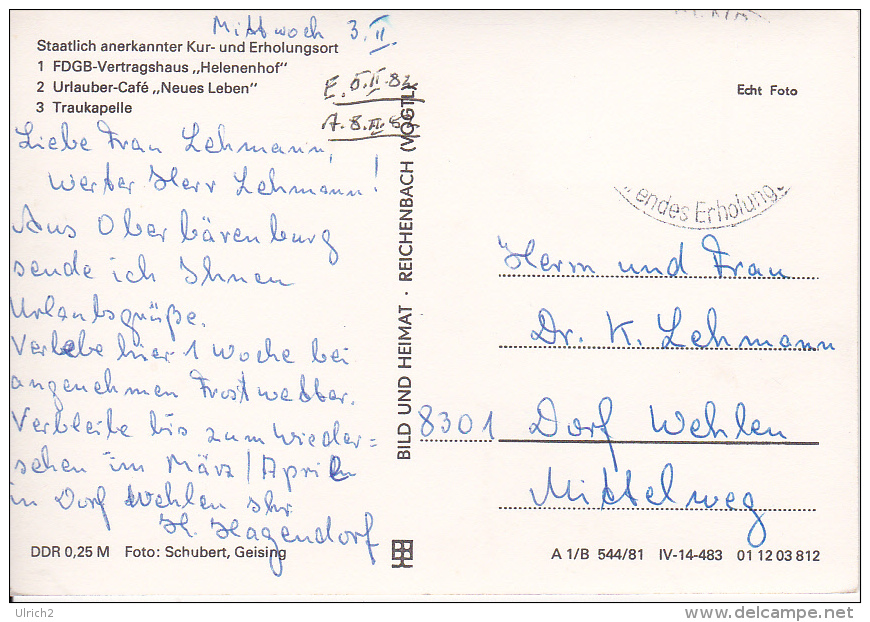 Mittwoch 3.II.
Staatlich anerkannter Kur- und Erholungsort
1 FDGB-Vertragshaus „Helenenhof"
2 Urlauber-Café „Neues Leben"
3 Traukapelle
E. 5.II.82
A. 8.II.82
Liebe Frau Lehmann,
werter Herr Lehmann!
Aus Oberbärenburg
sende ich Ihnen
Urlaubsgrüße.
Verlebe hier 1 Woche bei
angenehmen Frostwetter.
Verbleibe bis zum Wieder=
sehen im März/April
in Dorf Wehlen Ihr
H. Hagendorf
DDR 0,25 M Foto: Schubert, Geising
BILD UND HEIMAT · REICHENBACH (VOGTL)
Echt Foto
endes Erholung
Herrn und Frau
Dr. K. Lehmann
8301 Dorf Wehlen
Mittelweg
A 1/B 544/81 IV-14-483 01 12 03 812
Ulrich2
delcampe.net